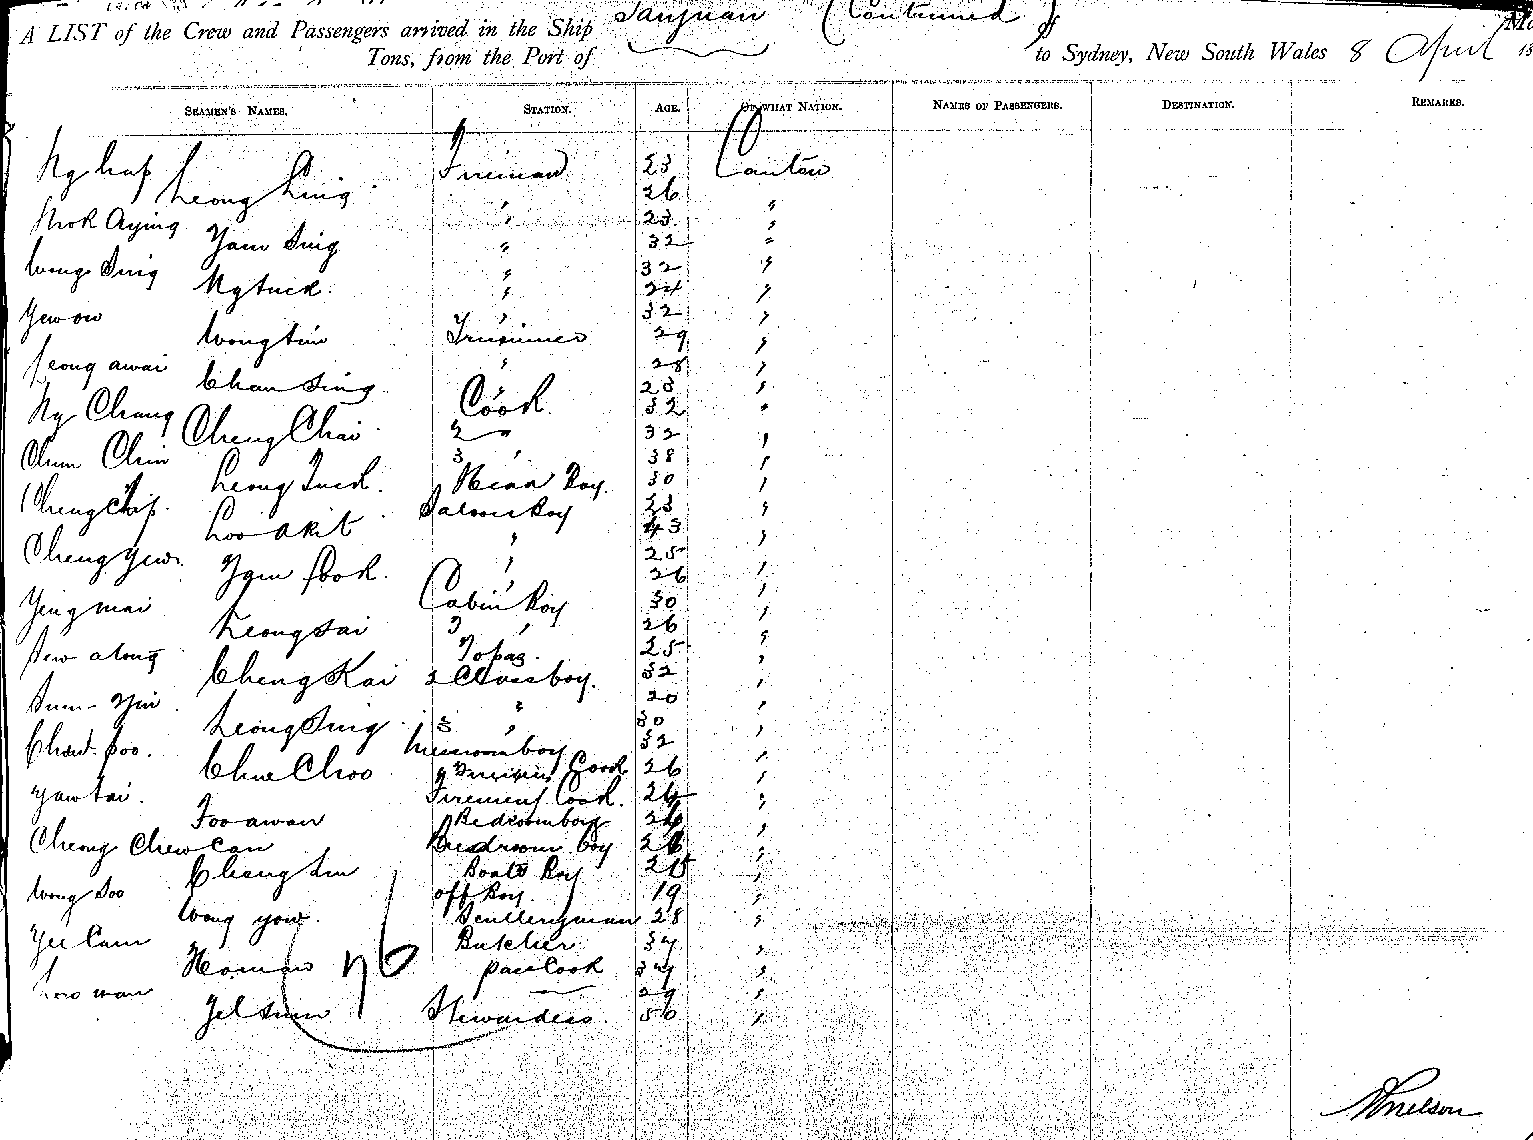 Taiyuan (Continued)
A LIST of the Crew and Passengers arrived in the Ship
Tons, from the Port of to Sydney, New South Wales 8 April
SEAMEN'S NAMES. STATION. AGE. OF WHAT NATION. NAMES OF PASSENGERS. DESTINATION. REMARKS.
Ng hap Fireman 23 Canton
Leong Ling " 26 "
Mok Aying " 23 "
Yam Sing " 32 "
Wong Sing " 32 "
Ng tuck " 24 "
Yew ow " 32 "
Wong tim Trimmer 29 "
Leong awai " 28 "
Chan Sing " 23 "
Ng Chang Cook 32 "
Cheng Chai 2 " 32 "
Chun Chin 3 " 38 "
Leong Tuck Head Boy 30 "
Cheng Chip Saloon Boy 23 "
Loo akit " 43 "
Cheng yew " 25 "
Yam fook " 26 "
Ying mai Cabin Boy 30 "
Leong sai 3 " 26 "
Sew along Topaz 25 "
Cheng Kai 2 Class boy 32 "
Sum yin " 20 "
Leong Sing 3 " 30 "
Chow foo Messroom boy 32 "
Chue Choo Cook 26 "
Yaw tai Firemens Cook 26 "
Foo awan Bedroom boy 26 "
Cheong Chew can Bedroom boy 26 "
Cheng Boats Boy 25 "
Wong Soo off Boy 19 "
Wong yow Scullery man 28 "
Yee Cam Butcher 34 "
Homan pass Cook 34 "
wan 29 "
Yel Sum Stewardess 50 "
76
Nelson